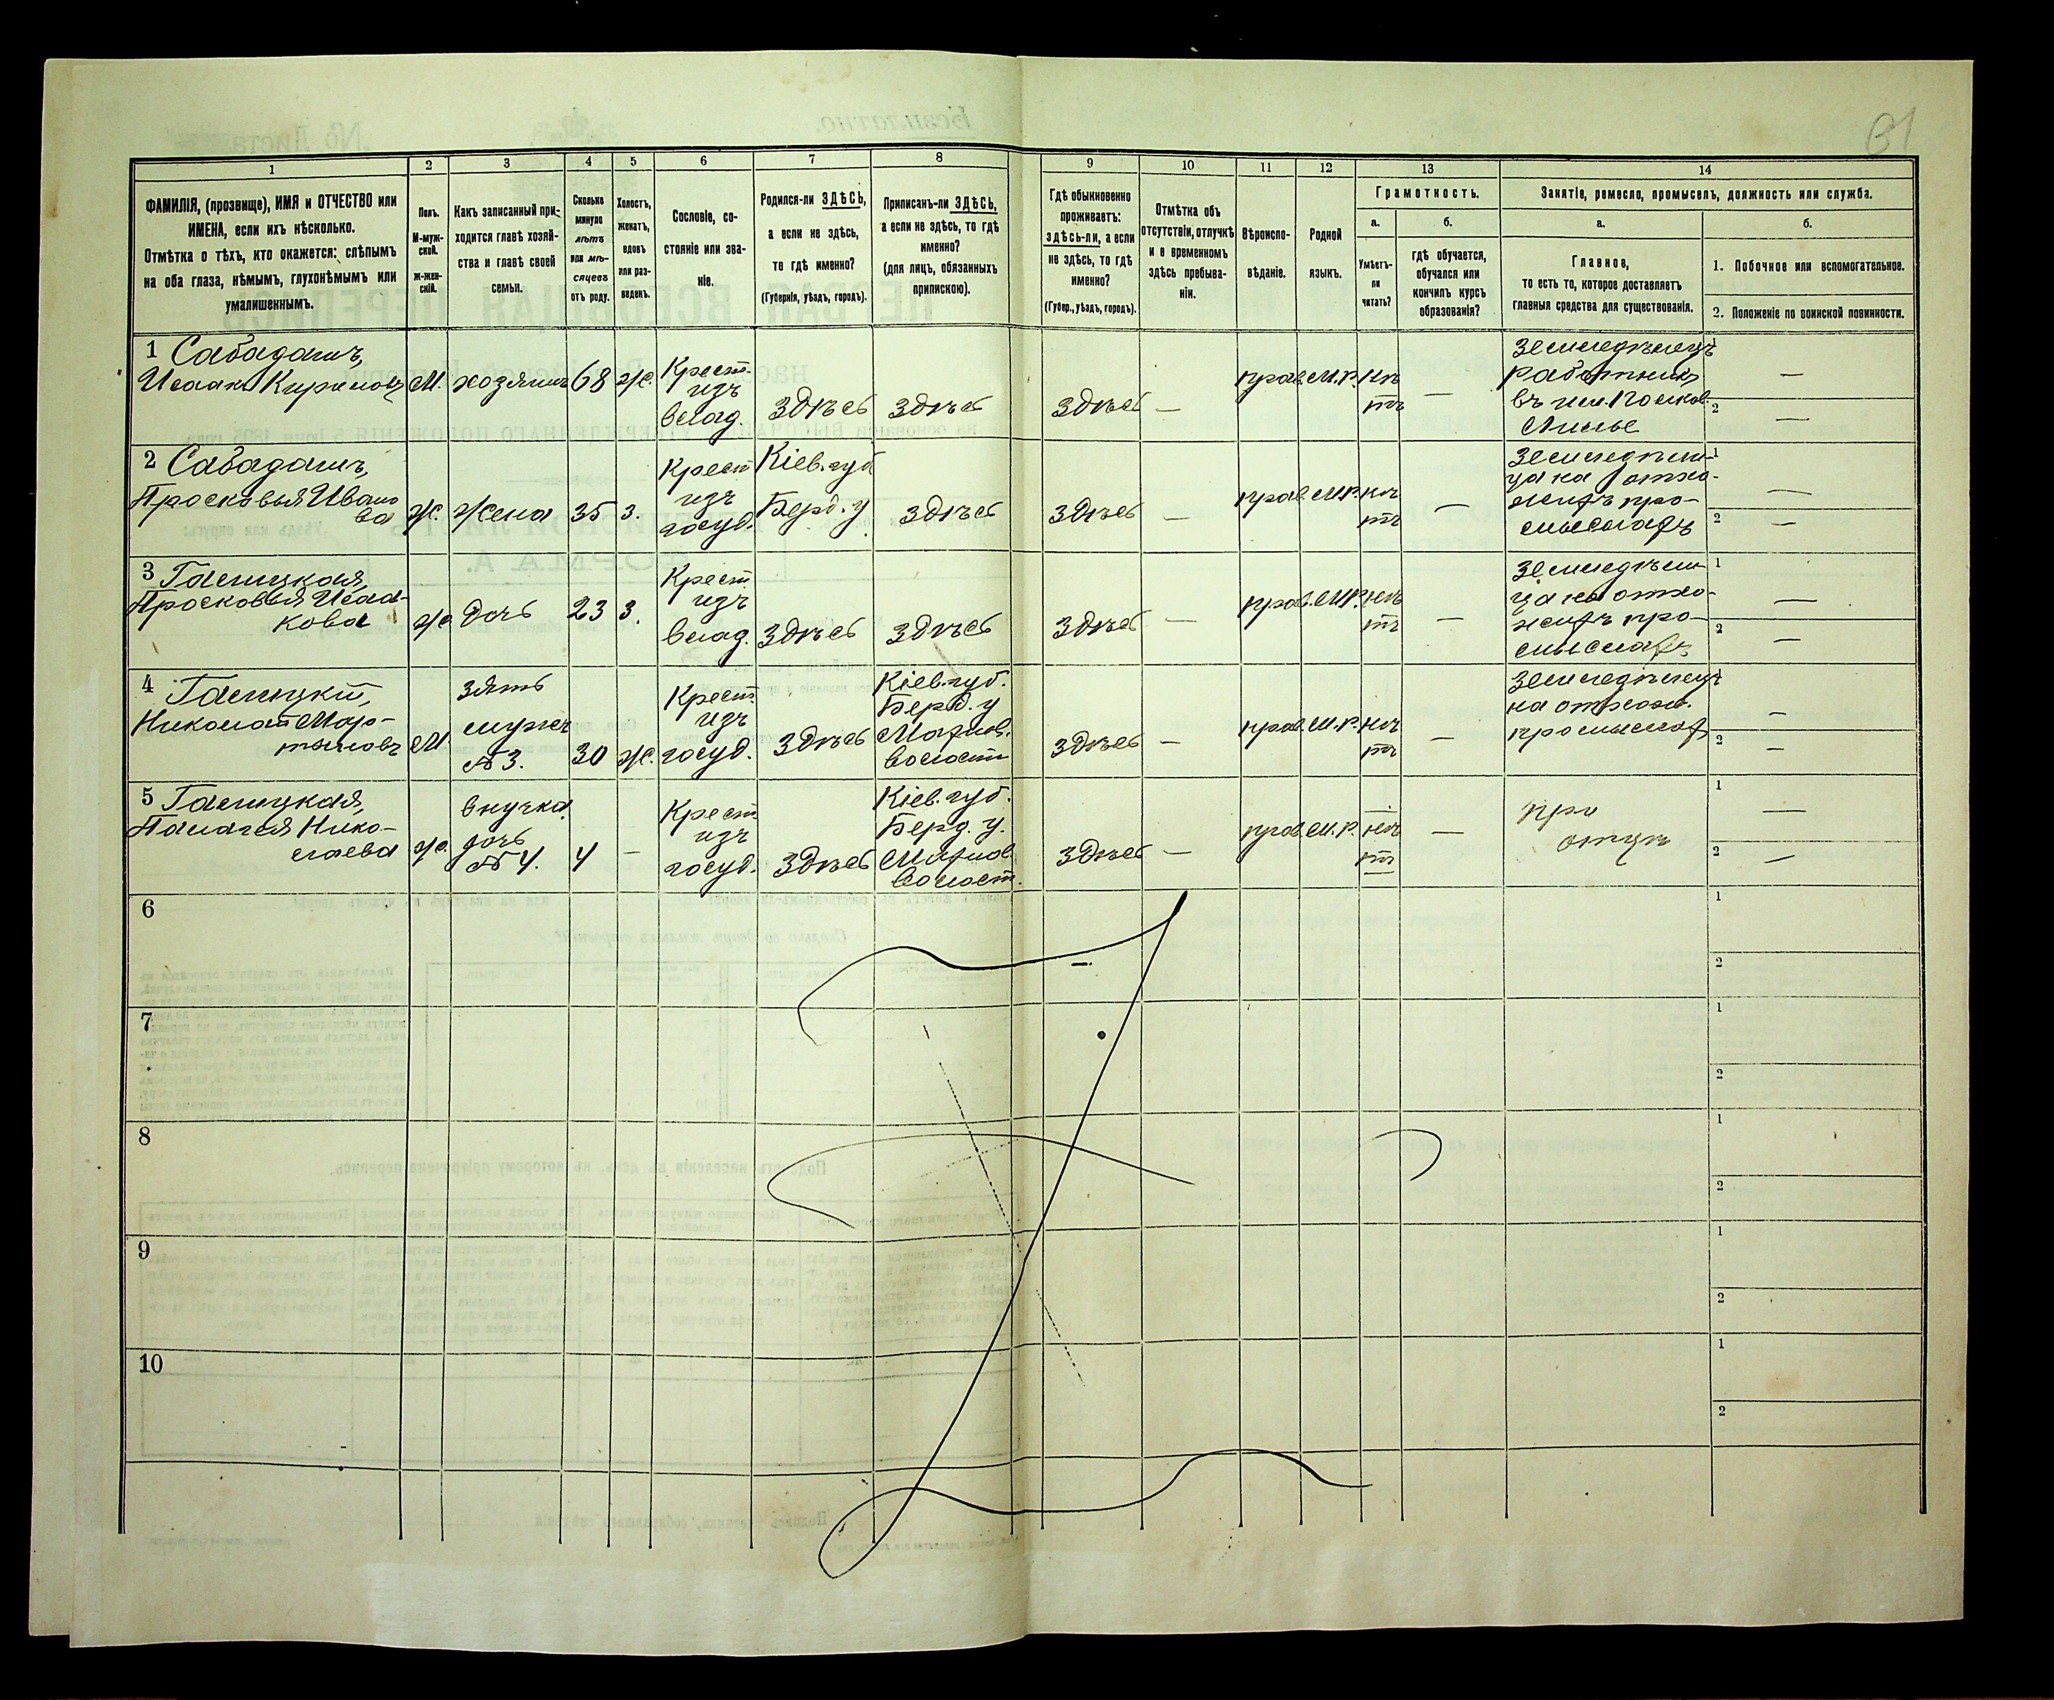 61
1 2 3 4 5 6 7 8 9 10 11 12 13 14
ФАМИЛІЯ, (прозвище), ИМЯ и ОТЧЕСТВО или
ИМЕНА, если ихъ нѣсколько.
Отмѣтка о тѣхъ, кто окажется: слѣпымъ
на оба глаза, нѣмымъ, глухонѣмымъ или
умалишеннымъ.
Полъ.
М-муж-
ской.
ж-жен-
скій.
Какъ записанный при-
ходится главѣ хозяй-
ства и главѣ своей
семьи.
Сколько
минуло
лѣтъ
или мѣ-
сяцевъ
отъ роду.
Холостъ,
женатъ,
вдовъ
или раз-
веденъ.
Сословіе, со-
стояніе или зва-
ніе.
Родился-ли ЗДѢСЬ,
а если не здѣсь,
то гдѣ именно?
(Губернія, уѣздъ, городъ).
Приписанъ-ли ЗДѢСЬ,
а если не здѣсь, то гдѣ
именно?
(для лицъ, обязанныхъ
припискою).
Гдѣ обыкновенно
проживаетъ:
здѣсь-ли, а если
не здѣсь, то гдѣ
именно?
(Губер., уѣздъ, городъ).
Отмѣтка объ
отсутствіи, отлучкѣ
и о временномъ
здѣсь пребыва-
ніи.
Вѣроиспо-
вѣданіе.
Родной
языкъ.
Грамотность.
а.
Умѣетъ-
ли
читать?
б.
гдѣ обучается,
обучался или
кончилъ курсъ
образованія?
Занятіе, ремесло, промыселъ, должность или служба.
а.
Главное,
то есть то, которое доставляетъ
главныя средства для существованія.
б.
1. Побочное или вспомогательное.
2. Положеніе по воинской повинности.
1 Сабадашъ,
Исаакъ Кириловъ
М.
хозяинъ
68
ж.
Крест.
изъ
влад.
Здѣсь
Здѣсь
Здѣсь
—
прав.
М.Р.
нѣ
тъ
—
земледѣлецъ
работникъ
въ им.
1 —
2 —
2 Сабадашъ,
Просковья Ивано
ва
Ж.
жена
35
з.
Крест
изъ
госуд.
Кіев. губ
Берд. у.
Здѣсь
Здѣсь
—
прав.
М.Р.
нѣ
тъ
—
земледѣли-
ца на отхо-
жихъ про-
мыслахъ
1 —
2 —
3 Галицкая,
Просковья Исаа-
кова
ж.
дочь
23
з.
Крест.
изъ
влад.
Здѣсь
Здѣсь
Здѣсь
—
прав.
М.Р.
нѣ
тъ
—
земледѣли-
ца на отхо-
жихъ про-
мыслахъ
1 —
2 —
4 Галицкій,
Николай Мар-
тыновъ
М
зять
мужъ
№ 3.
30
ж.
Крест.
изъ
госуд.
Здѣсь
Кіев. губ.
Берд. у
Махнов.
волости
Здѣсь
—
прав.
М.Р.
нѣ
тъ
—
земледѣлецъ
на отхож.
промыслахъ
1 —
2 —
5 Галицкая,
Палагея Нико-
лаева
ж.
внучка,
дочь
№ 4.
4
—
Крест.
изъ
госуд.
Здѣсь
Кіев. губ.
Берд. у.
Махнов
волост.
Здѣсь
—
прав.
М.Р.
нѣ
тъ
—
при
отцѣ
1 —
2 —
6
1
2
7
1
2
8
1
2
9
1
2
10
1
2